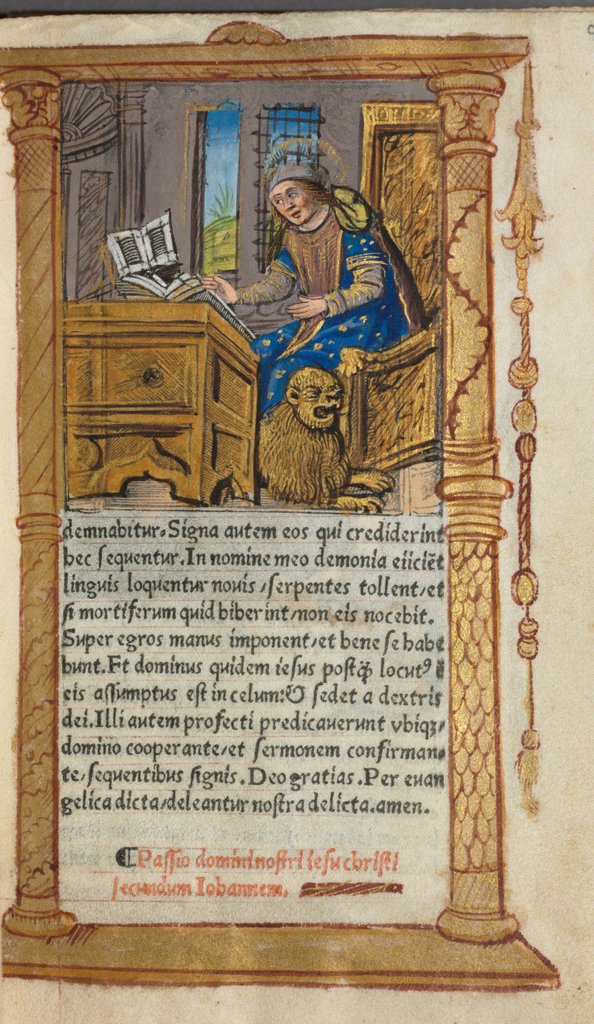 demnabitur. Signa autem eos qui crediderint
hec ſequentur. In nomine meo demonia eiiciẽt
linguis loquentur nouis / ſerpentes tollent / et
ſi mortiferum quid biberint / non eis nocebit.
Super egros manus imponent / et bene ſe habe
bunt. Et dominus quidem ieſus poſtq̃ locutꝰ ẽ
eis aſſumptus eſt in celum: & ſedet a dextris
dei. Illi autem profecti predicauerunt vbiqꝫ /
domino cooperante / et ſermonem confirman⸗
te / ſequentibus ſignis. Deo gratias. Per euan
gelica dicta / deleantur noſtra delicta. amen.
¶ Paſſio domini noſtri ieſu chriſti
ſecundum Iohannem.